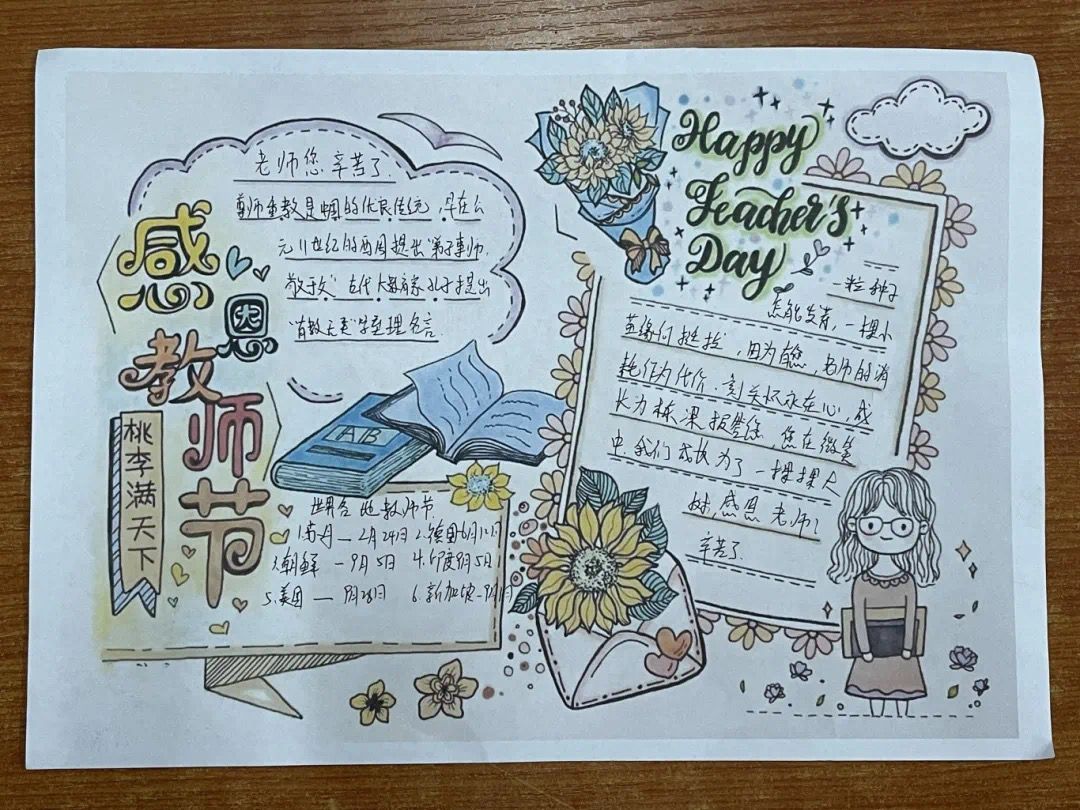 感恩
教师节
桃李满天下
老师您辛苦了.
尊师重教是中国的优良传统,早在公
元11世纪的西周提出"弟子事师,
敬于父"古代大教育家孔子提出
"有教无类"等至理名言.
AB
世界各地教师节
— 2月24日 2.德国6月12日
3.朝鲜 — 9月5日 4.印度9月5日
5.美国 — 9月28日 6.新加坡-9月1日
Happy
Teacher's
Day
一粒种子
怎能发育,一棵小
苗缘何挺拔,因为有您,老师的消
耗作为代价,关怀永在心,成
长为栋梁报答您,您在微笑
中.我们成长为了一棵棵大
树,感恩老师
辛苦了.